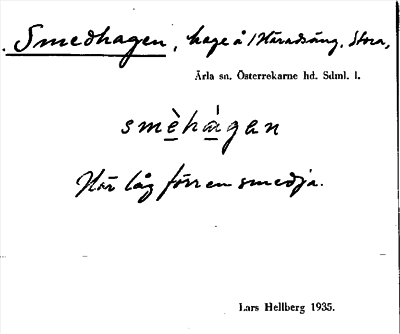 Smedhagen, hage å /Häradsäng, Stora,
Ärla sn. Österrekarne hd. Sdml. l.
smè̱hà̱gan
Här låg förr en smedja.
Lars Hellberg 1935.